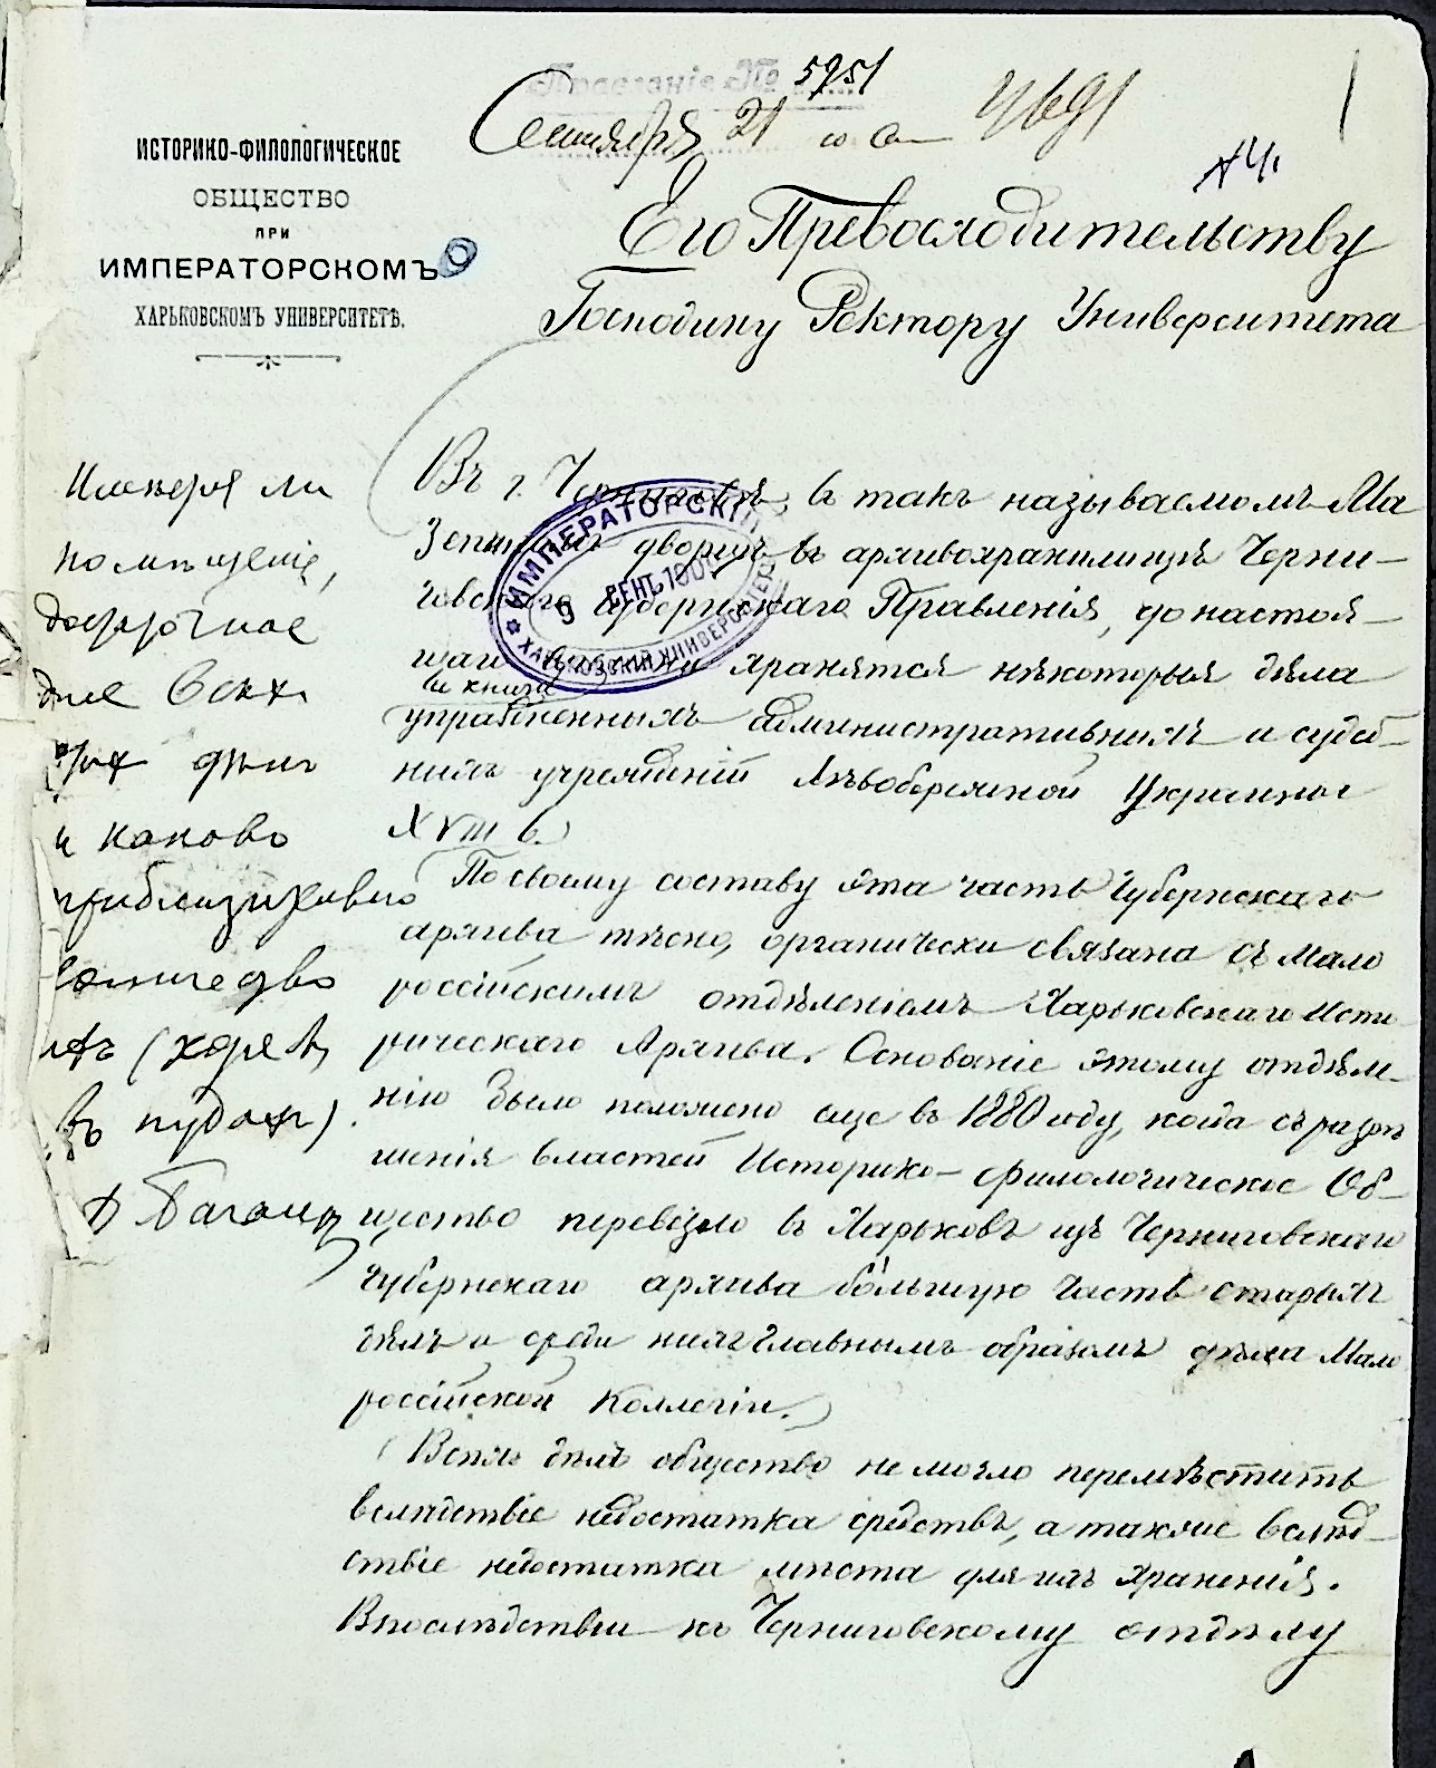 Правленіе № 5951
Сентября 21
ИСТОРИКО-ФИЛОЛОГИЧЕСКОЕ
ОБЩЕСТВО
ПРИ
ИМПЕРАТОРСКОМЪ
ХАРЬКОВСКОМЪ УНИВЕРСИТЕТѢ.
Его Превосходительству
Господину Ректору Университета
Имѣется ли
помѣщеніе,
достаточное
для всѣхъ
этих дѣлъ
и каково
приблизительно
количество
ихъ (хотя бы
въ пудахъ).
Д Багалѣй
ИМПЕРАТОРСКІЙ
9 СЕНТ. 190
ХАРЬКОВСКІЙ УНИВЕРСИТЕТЪ
Въ г. Черниговѣ, въ такъ называемомъ Ма
зепиномъ дворцѣ въ архивохранилищѣ Черни-
говскаго Губернскаго Правленія, до настоя-
щаго времени хранятся нѣкоторыя дѣла
и книги
упраздненныхъ административныхъ и судеб-
ныхъ учрежденій Лѣвобережной Украины
XVIII в.
По своему составу эта часть Губернскаго
архива тѣсно, органически связана съ Мало
россійскимъ отдѣленіемъ Харьковскаго Исто
рическаго Архива. Основаніе этому отдѣле-
нію было положено еще въ 1880 году, когда съ разрѣ
шенія властей Историко-филологическое Об-
щество перевезло въ Харьковъ изъ Черниговскаго
Губернскаго архива бо́льшую часть старыхъ
дѣлъ и среди нихъ главнымъ образомъ дѣла Мало
россійской Коллегіи.
Всѣхъ дѣлъ общество не могло перемѣстить
вслѣдствіе недостатка средствъ, а также вслѣд-
ствіе недостатка мѣста для ихъ храненія.
Впослѣдствіи къ Черниговскому отдѣлу